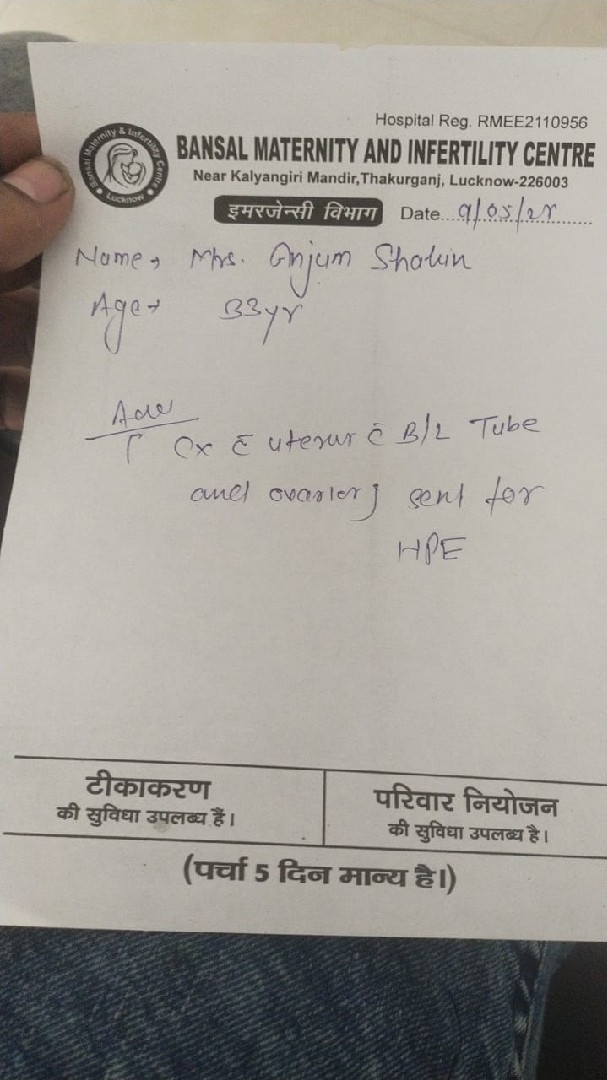 Hospital Reg. RMEE2110956
Bansal Maternity & Infertility Centre
Lucknow
BANSAL MATERNITY AND INFERTILITY CENTRE
Near Kalyangiri Mandir,Thakurganj, Lucknow-226003
इमरजेन्सी विभाग Date...9/05/25
Name, Mrs. Anjum
Age 33yr
Adv
Cx c̄ uterus c̄ B/L Tube
and ovaries sent for
HPE
टीकाकरण
की सुविधा उपलब्ध हैं।
परिवार नियोजन
की सुविधा उपलब्ध है।
(पर्चा 5 दिन मान्य है।)